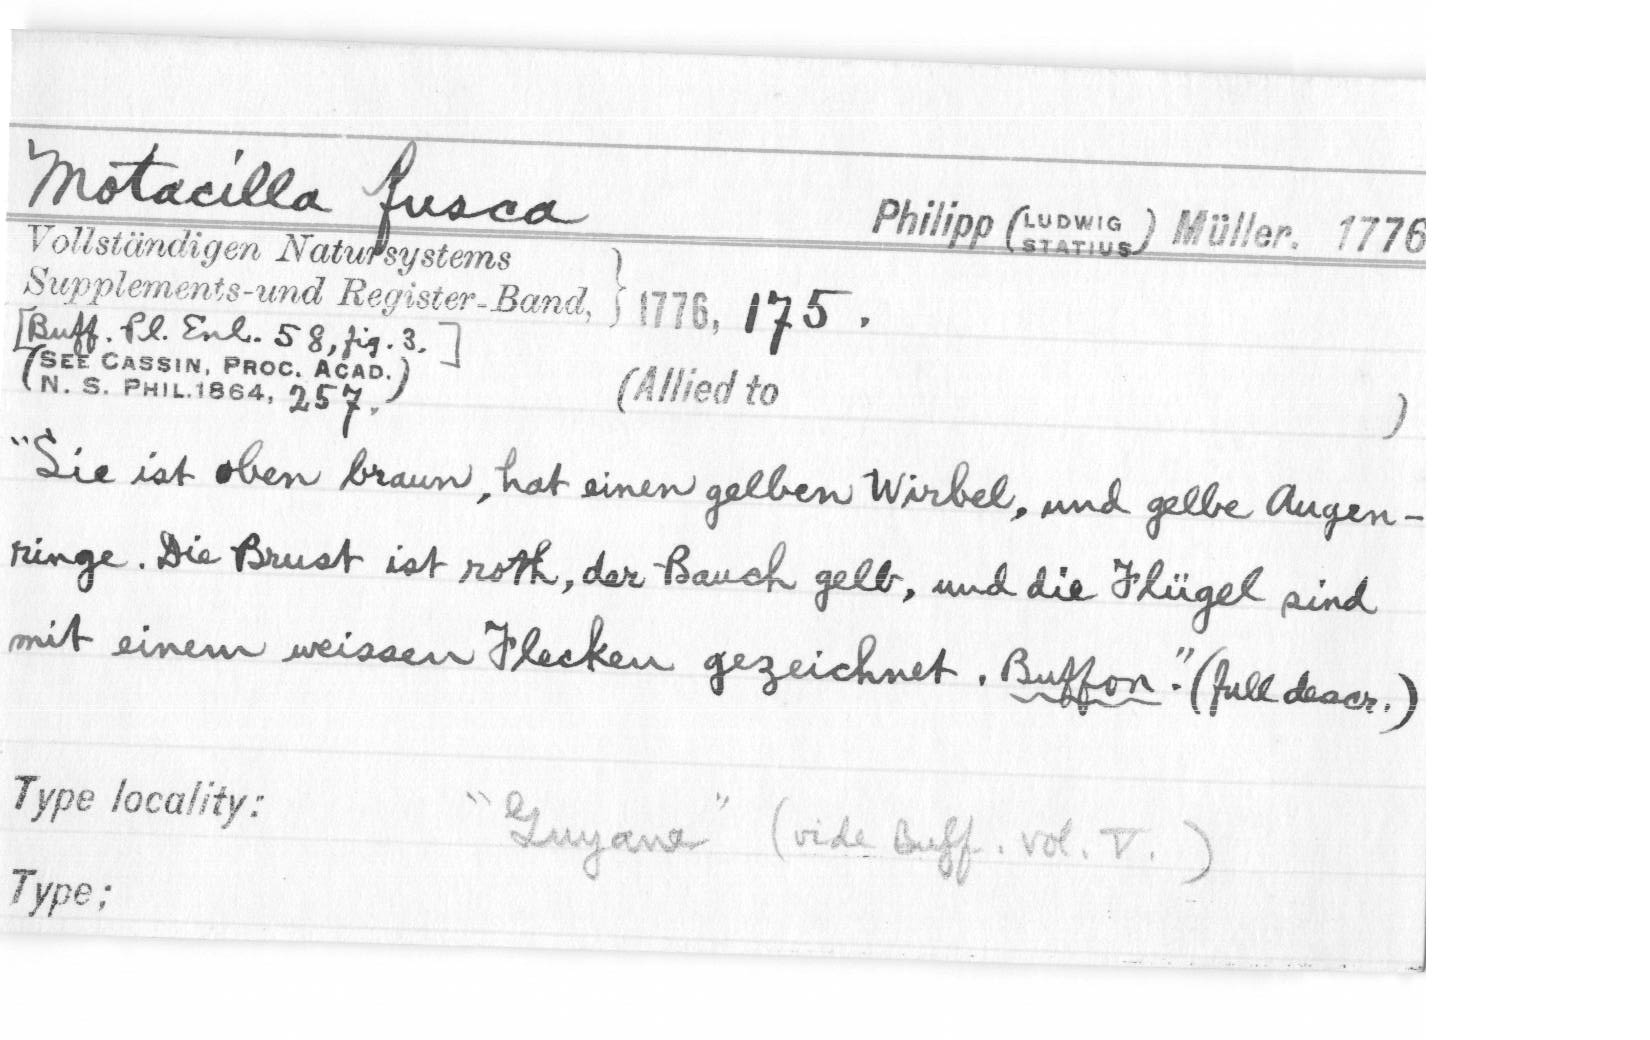 Motacilla fusca
Philipp (LUDWIG STATIUS) Müller. 1776
Vollständigen Natursystems
Supplements-und Register-Band, } 1776, 175.
[Buff. Pl. Enl. 58, fig. 3.]
(SEE CASSIN, PROC. ACAD.
N. S. PHIL. 1864, 257.)
(Allied to )
"Sie ist oben braun, hat einen gelben Wirbel, und gelbe Augen-
ringe. Die Brust ist roth, der Bauch gelb, und die Flügel sind
mit einem weissen Flecken gezeichnet. Buffon." (full descr.)
Type locality: "Guyane" (vide Buff. vol. V.)
Type;